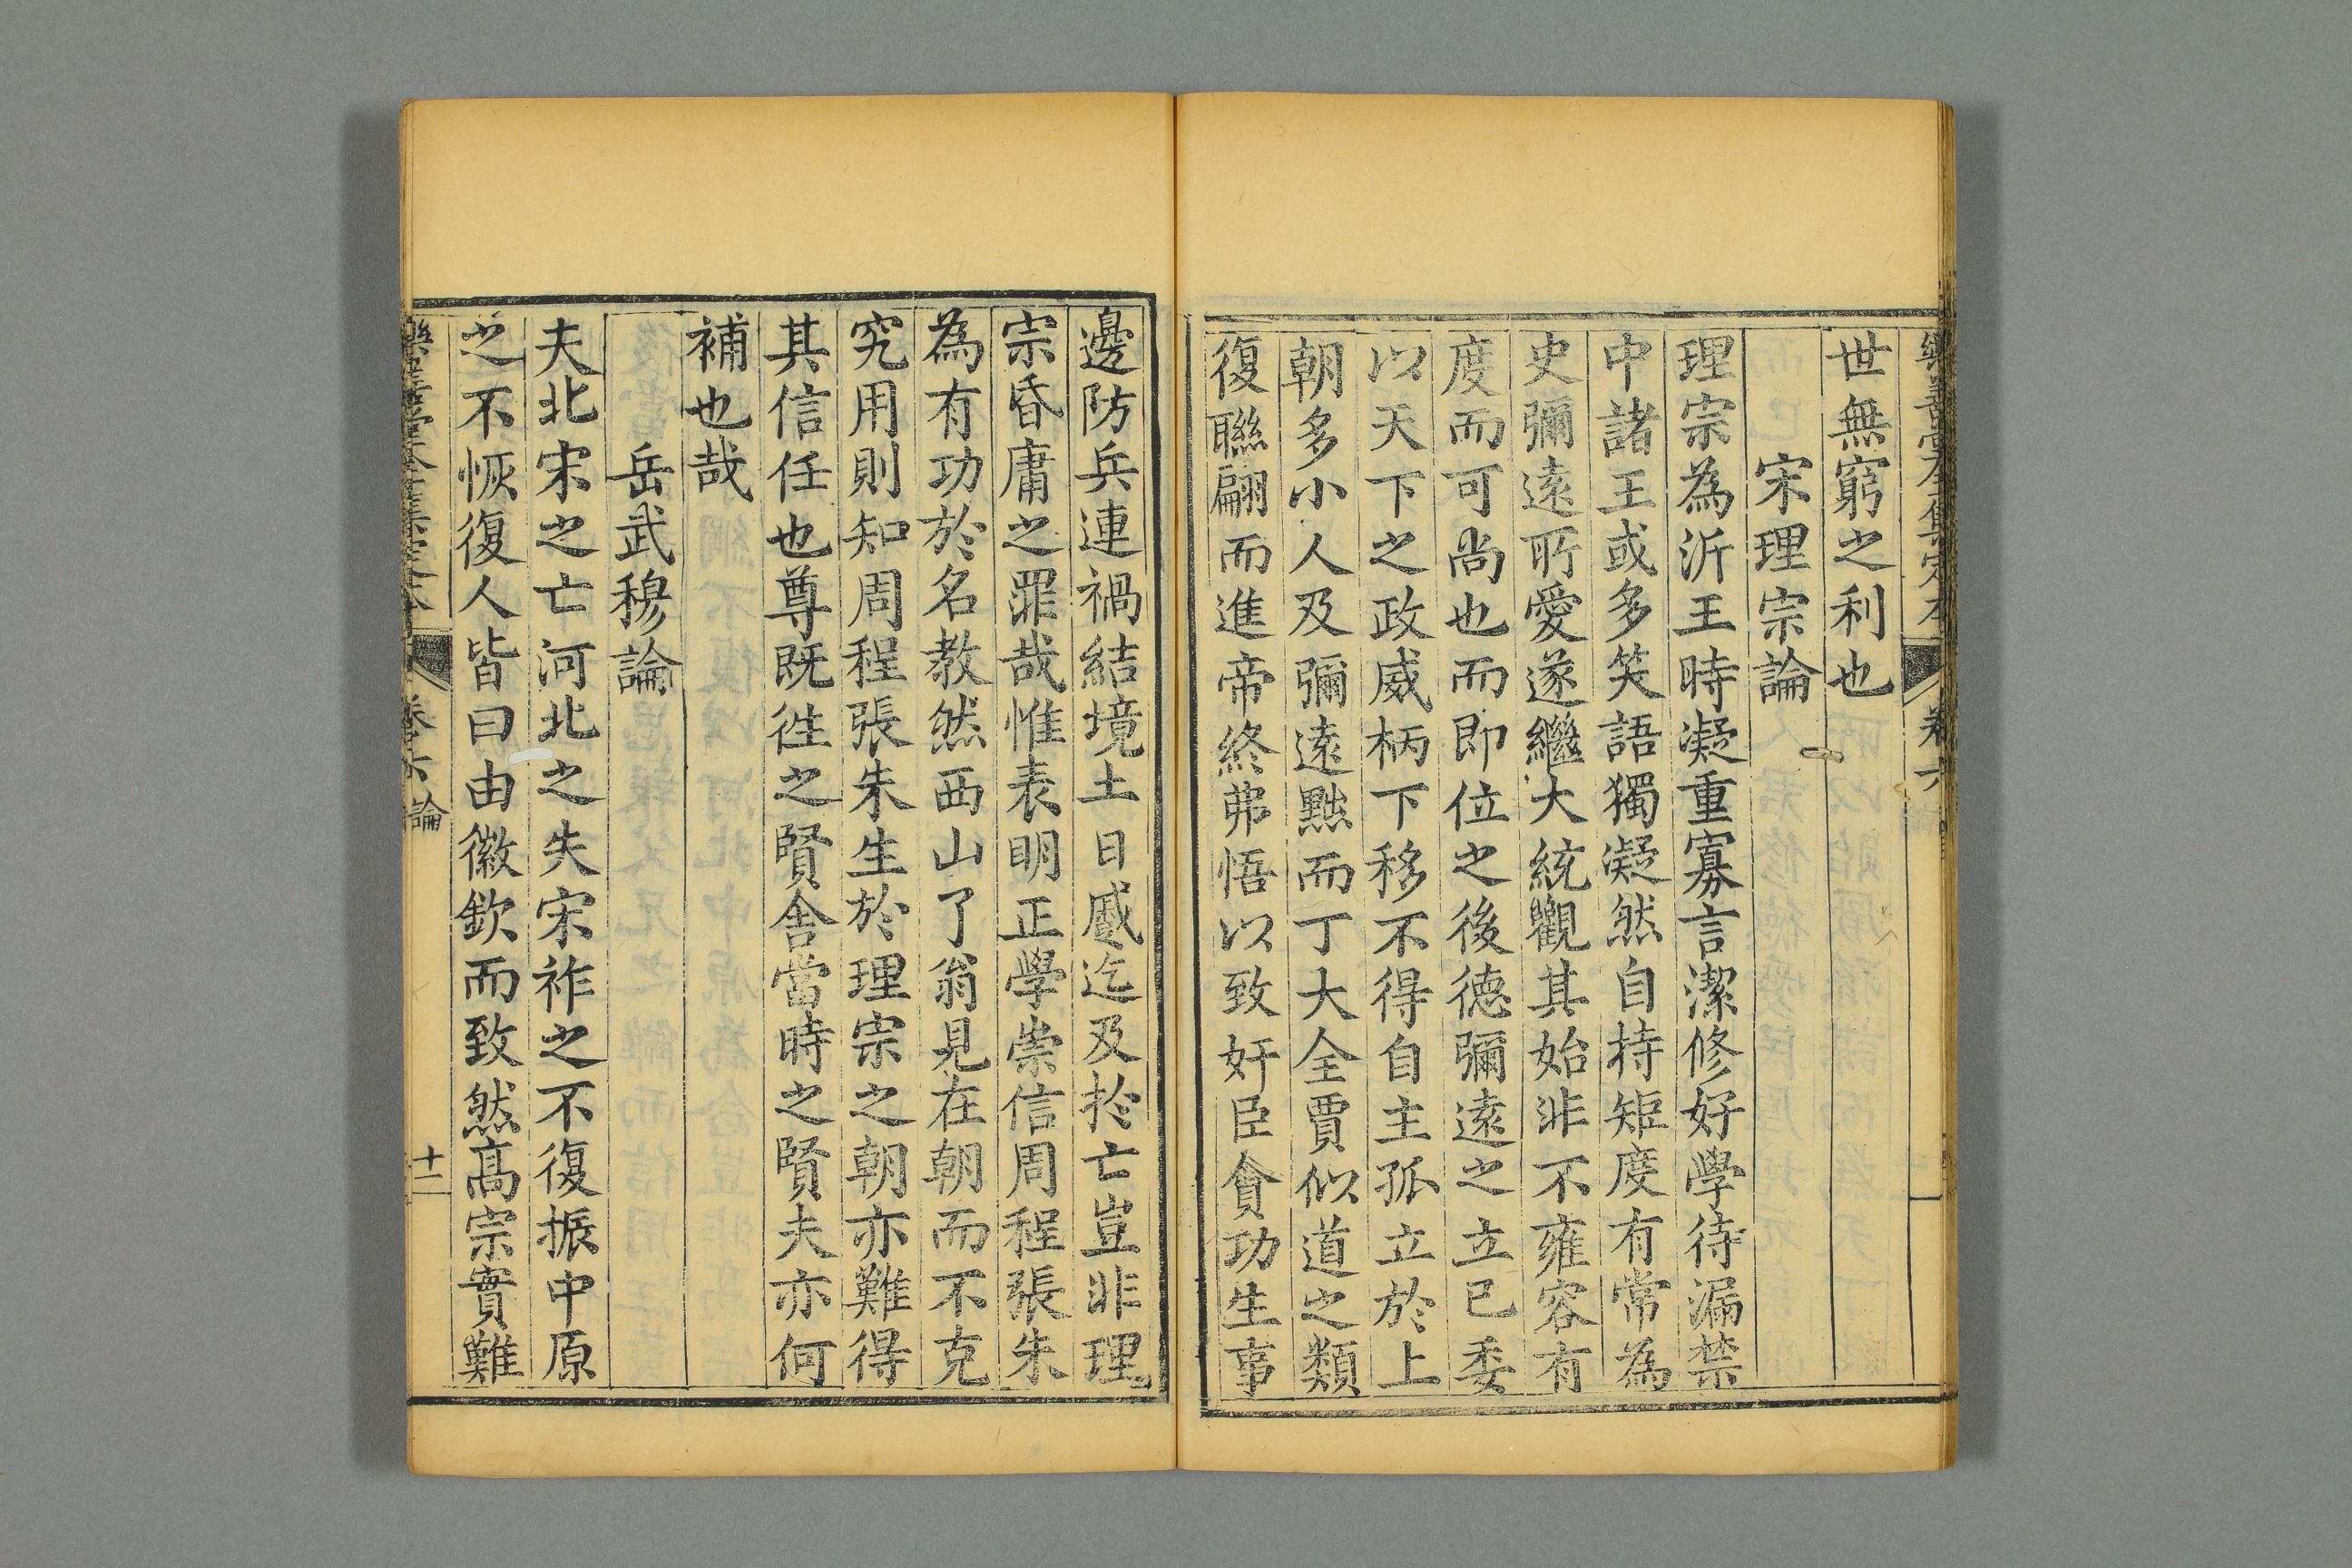 世無窮之利也
宋理宗論
理宗為沂王時凝重寡言潔修好學待漏禁
中諸王或多笑語獨凝然自持矩度有常為
史彌遠所愛遂繼大統觀其始非不雍容有
度而可尚也而即位之後德彌遠之立已委
以天下之政威柄下移不得自主孤立於上
朝多小人及彌遠黜而丁大全賈似道之類
復聯翩而進帝終弗悟以致奸臣貪功生事
邊防兵連禍結境土日蹙迄及於亡豈非理
宗昏庸之罪哉惟表明正學崇信周程張朱
為有功於名教然西山了翁見在朝而不克
究用則知周程張朱生於理宗之朝亦難得
其信任也尊既徃之賢舍當時之賢夫亦何
補也哉
岳武穆論
夫北宋之亡河北之失宋祚之不復振中原
之不恢復人皆曰由徽欽而致然高宗實難
樂善堂全集定本
卷六 論
十二